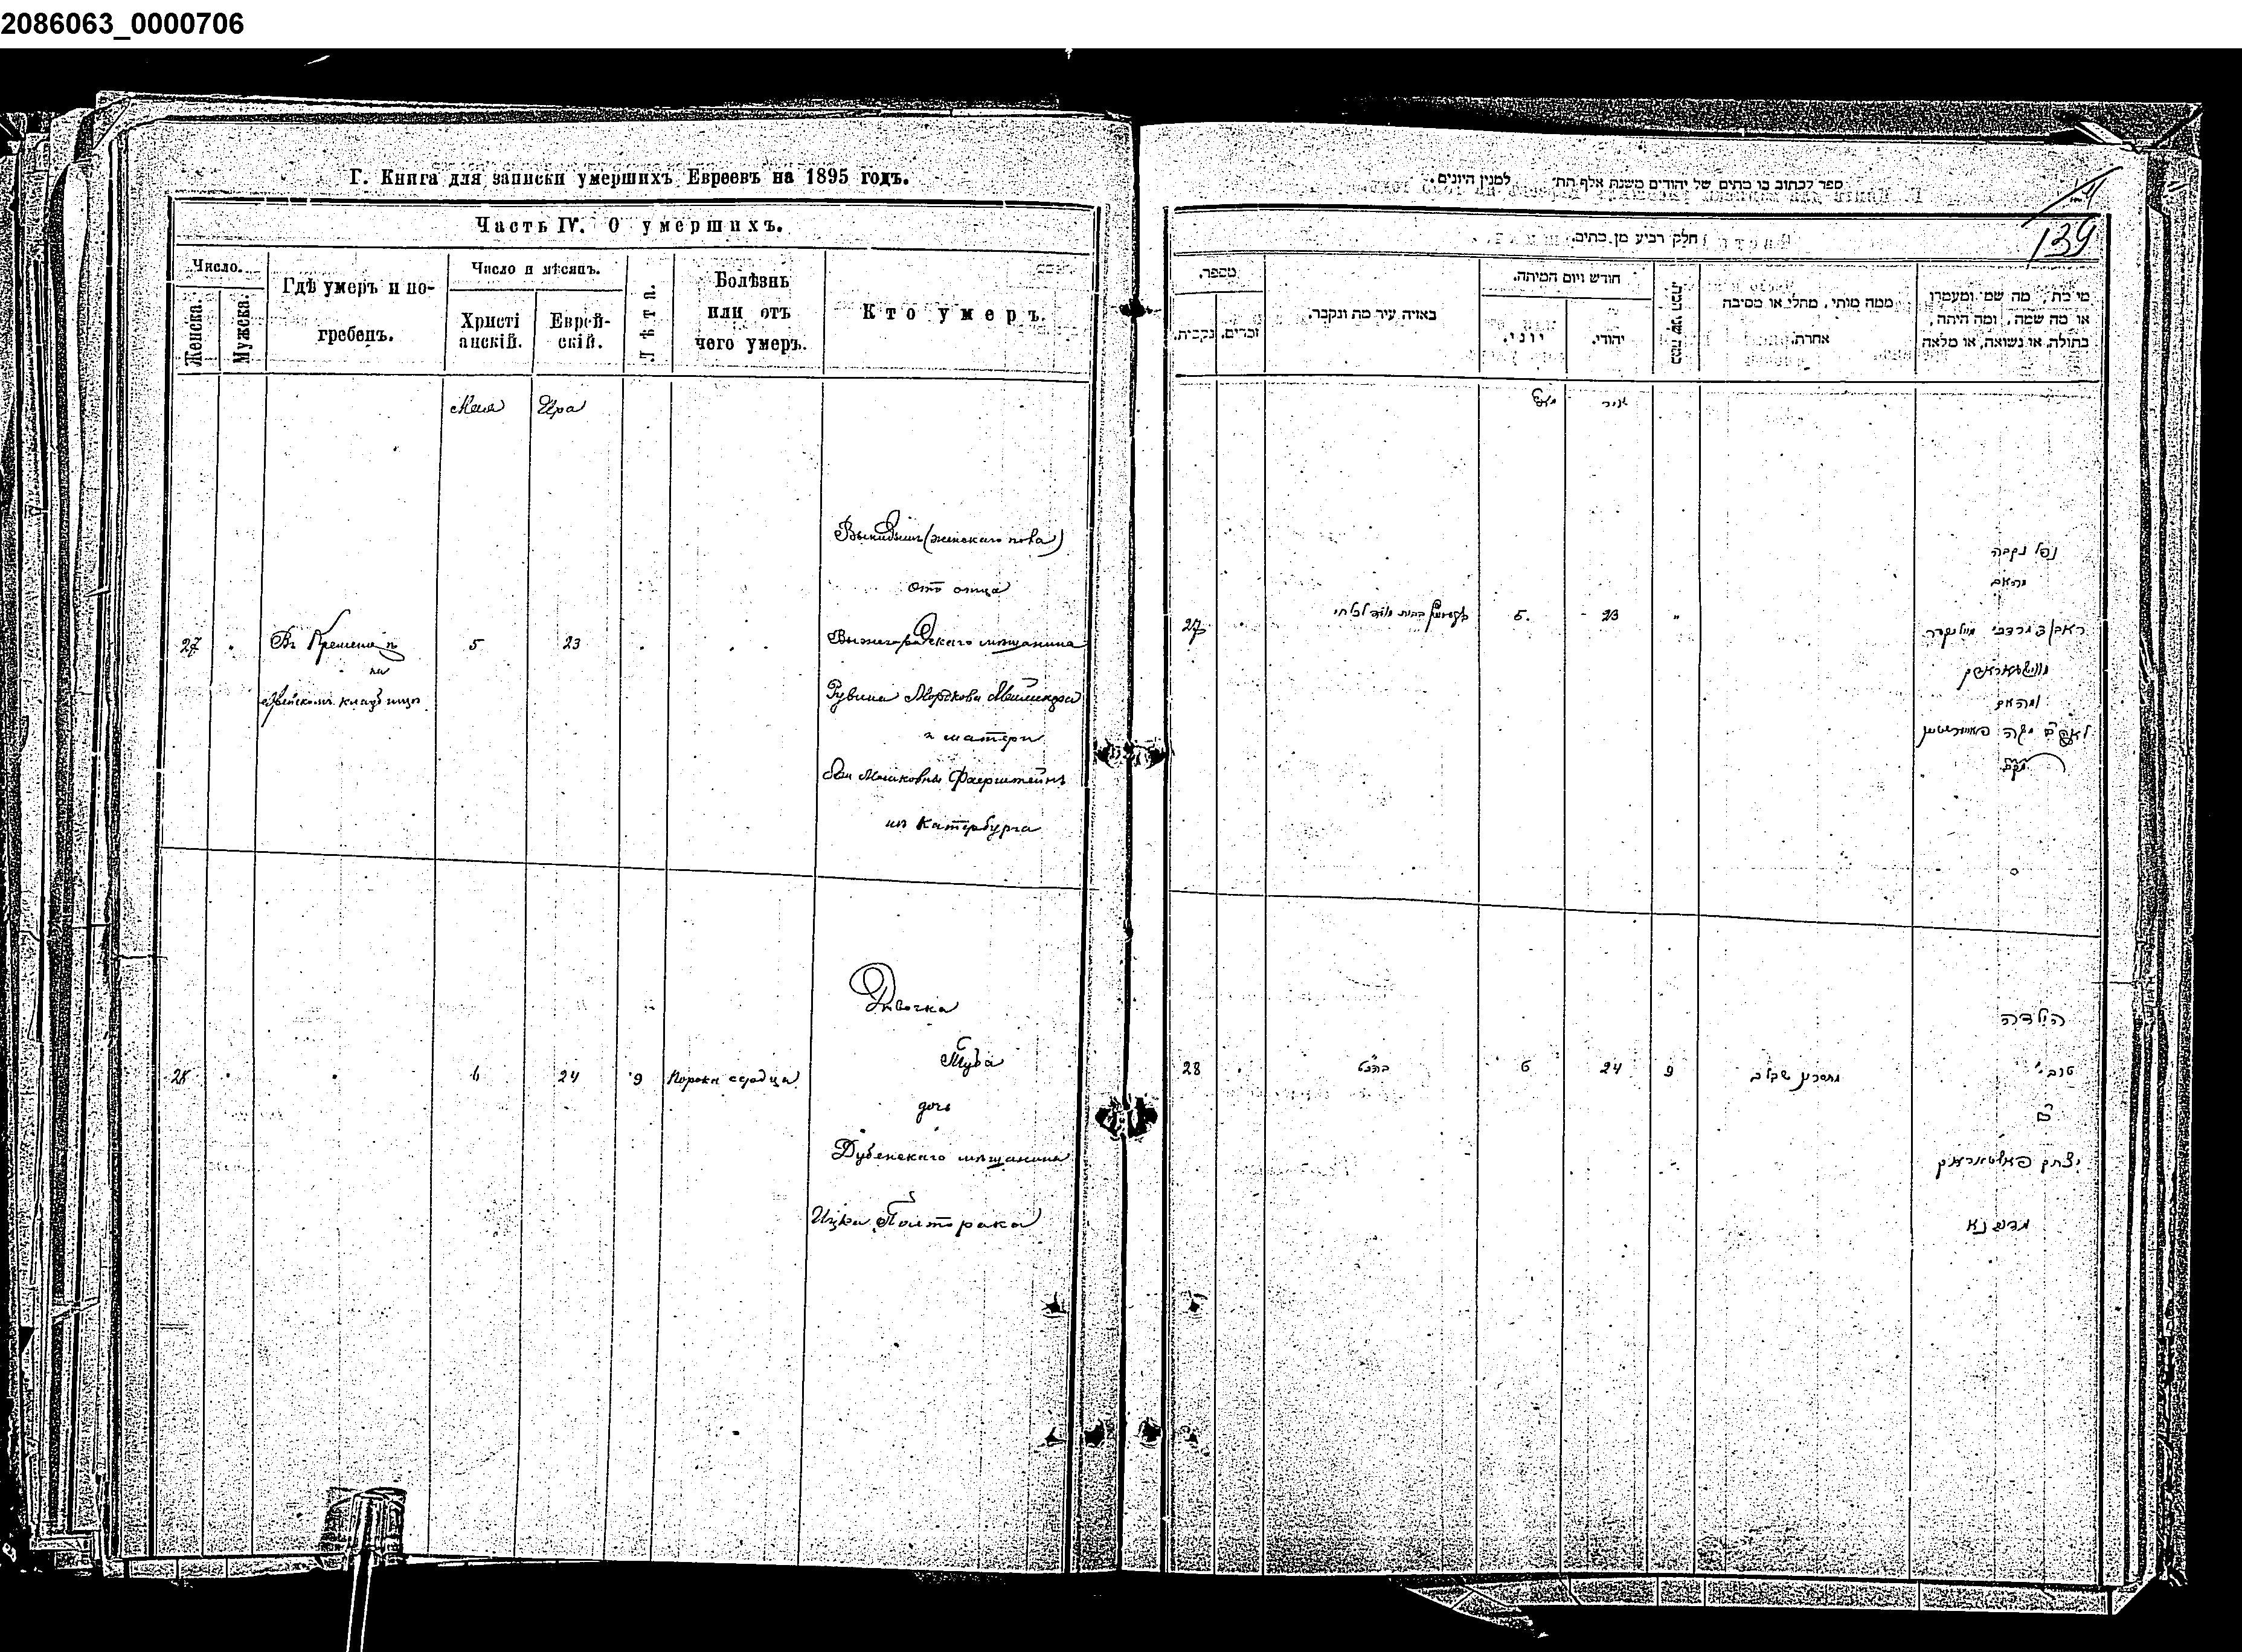 2086063_0000706
Г. Книга для записки умершихъ Евреевъ на 1895 годъ.
Часть IV. О умершихъ.
Число.
Женска.
Мужска.
Гдѣ умеръ и по-
гребенъ.
Число и мѣсяцъ.
Христі
анскій.
Еврей-
скій.
Лѣта.
Болѣзнь
или отъ
чего умеръ.
Кто умеръ.
Мая
Ира
27
Въ Кременцѣ
на
еврейскомъ кладбищѣ
5
23
Выкидышъ (женскаго пола)
отъ отца
Вышегродскаго мѣщанина
Рувина Мордкова
и матери
Мошковны Фаерштейнъ
изъ Катербурга
28
6
24
9
Порокъ сердца
Дѣвочка
Туба
дочь
Дубенскаго мѣщанина
Ицка Полторака
ספר לכתוב בו מתים של יהודים משנת אלף תת׳ למנין היונים.
139
חלק רביע מן מתים.
מספר.
נקבות.
זכרים.
באיזה עיר מת ונקבר.
חודש ויום המיתה.
יוני.
יהודי.
כמה שני
ממה מותו, מחלי או מסיבה
אחרת.
מי מת, מה שמו ומעמדו
או מה שמה, ומה היתה,
בתולה, או נשואה, או מלאה
מאי
אייר
27
5.
23
נפל נקבה
מהאב
ומהאם
28
6
24
9
הילדה
טובי
יצחק פאלטאראק
מדובנא